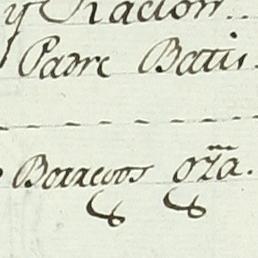 y Racion
Padre Batis
Borregos gza.